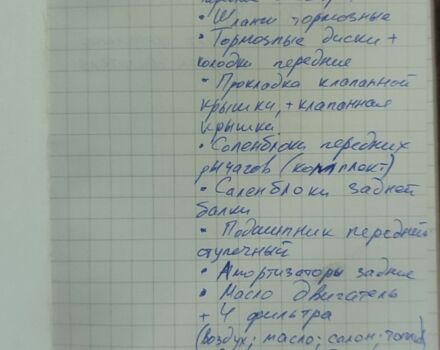 • Шланги тормозные
• Тормозные диски +
колодки передние
• Прокладка клапанной
крышки, + клапанная
крышка
• Саленблоки передних
рычагов (комплект)
• Саленблоки задней
балки
• Подшипник передней
ступечный
• Амортизаторы задние
• Масло двигатель
+ 4 фильтра
(воздух; масло; салон; топл)